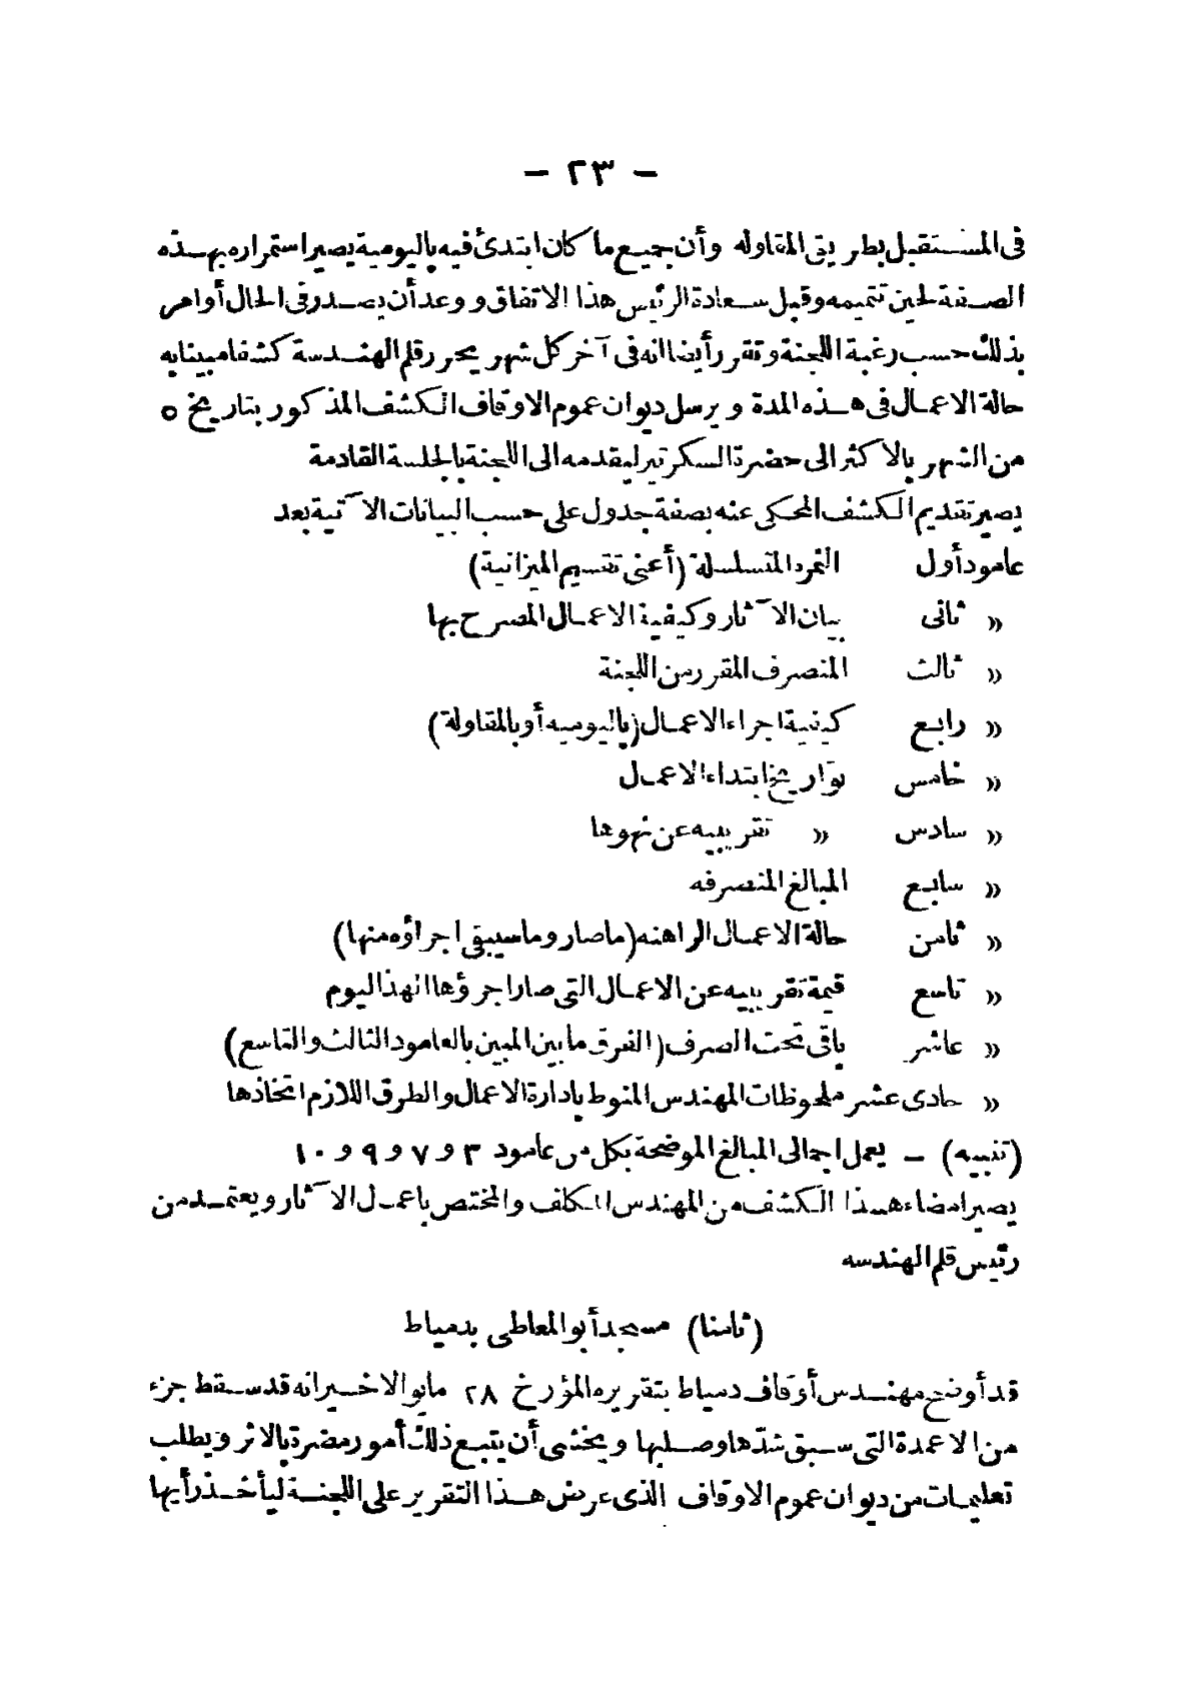 — ٢٣ —
فى المستقبل بطريق المقاوله وأن جميع ما كان ابتدئ فيه باليومية يصير استمراره بهذه
الصفة لحين تتميمه وقبل سعادة الرئيس هذا الاتفاق ووعد أن يصدر فى الحال أوامر
بذلك حسب رغبة اللجنة وتقرر أيضا انه فى آخر كل شهر يحرر قلم الهندسة كشفا مبينا به
حالة الاعمال فى هذه المدة ويرسل ديوان عموم الاوقاف الكشف المذكور بتاريخ ٥
من الشهر بالاكثر الى حضرة السكرتير ليقدمه الى اللجنة بالجلسة القادمة
يصير تقديم الكشف المحكى عنه بصفة جدول على حسب البيانات الآتية بعد
عامود أول النمر المتسلسلة (أعنى تقسيم الميزانية)
» ثانى بيان الآثار وكيفية الاعمال المصرح بها
» ثالث المنصرف المقرر من اللجنة
» رابع كيفية اجراء الاعمال (باليوميه أو بالمقاولة)
» خامس تواريخ ابتداء الاعمال
» سادس » تقريبيه عن نهوها
» سابع المبالغ المنصرفه
» ثامن حالة الاعمال الراهنه (ما صار وما سيبقى اجراؤه منها)
» تاسع قيمة تقريبيه عن الاعمال التى صار اجرؤها انهذا اليوم
» عاشر باقى تحت الصرف (الفرق ما بين المبين بالعامود الثالث والتاسع)
» حادى عشر ملحوظات المهندس المنوط بادارة الاعمال والطرق اللازم اتخاذها
(تنبيه) — يعمل اجمالى المبالغ الموضحة بكل من عامود ٣ و ٧ و ٩ و ١٠
يصير امضاء هذا الكشف من المهندس المكلف والمختص باعمال الآثار ويعتمد من
رئيس قلم الهندسه
(ثامنا) مسجد أبو المعاطى بدمياط
قد أوضح مهندس أوقاف دمياط بتقريره المؤرخ ٢٨ مايو الاخير انه قد سقط جزء
من الاعمدة التى سبق شدّها وصلبها ويخشى أن يتبع ذلك أمور مضرة بالاثر ويطلب
تعليمات من ديوان عموم الاوقاف الذى عرض هذا التقرير على اللجنة ليأخذ رأيها